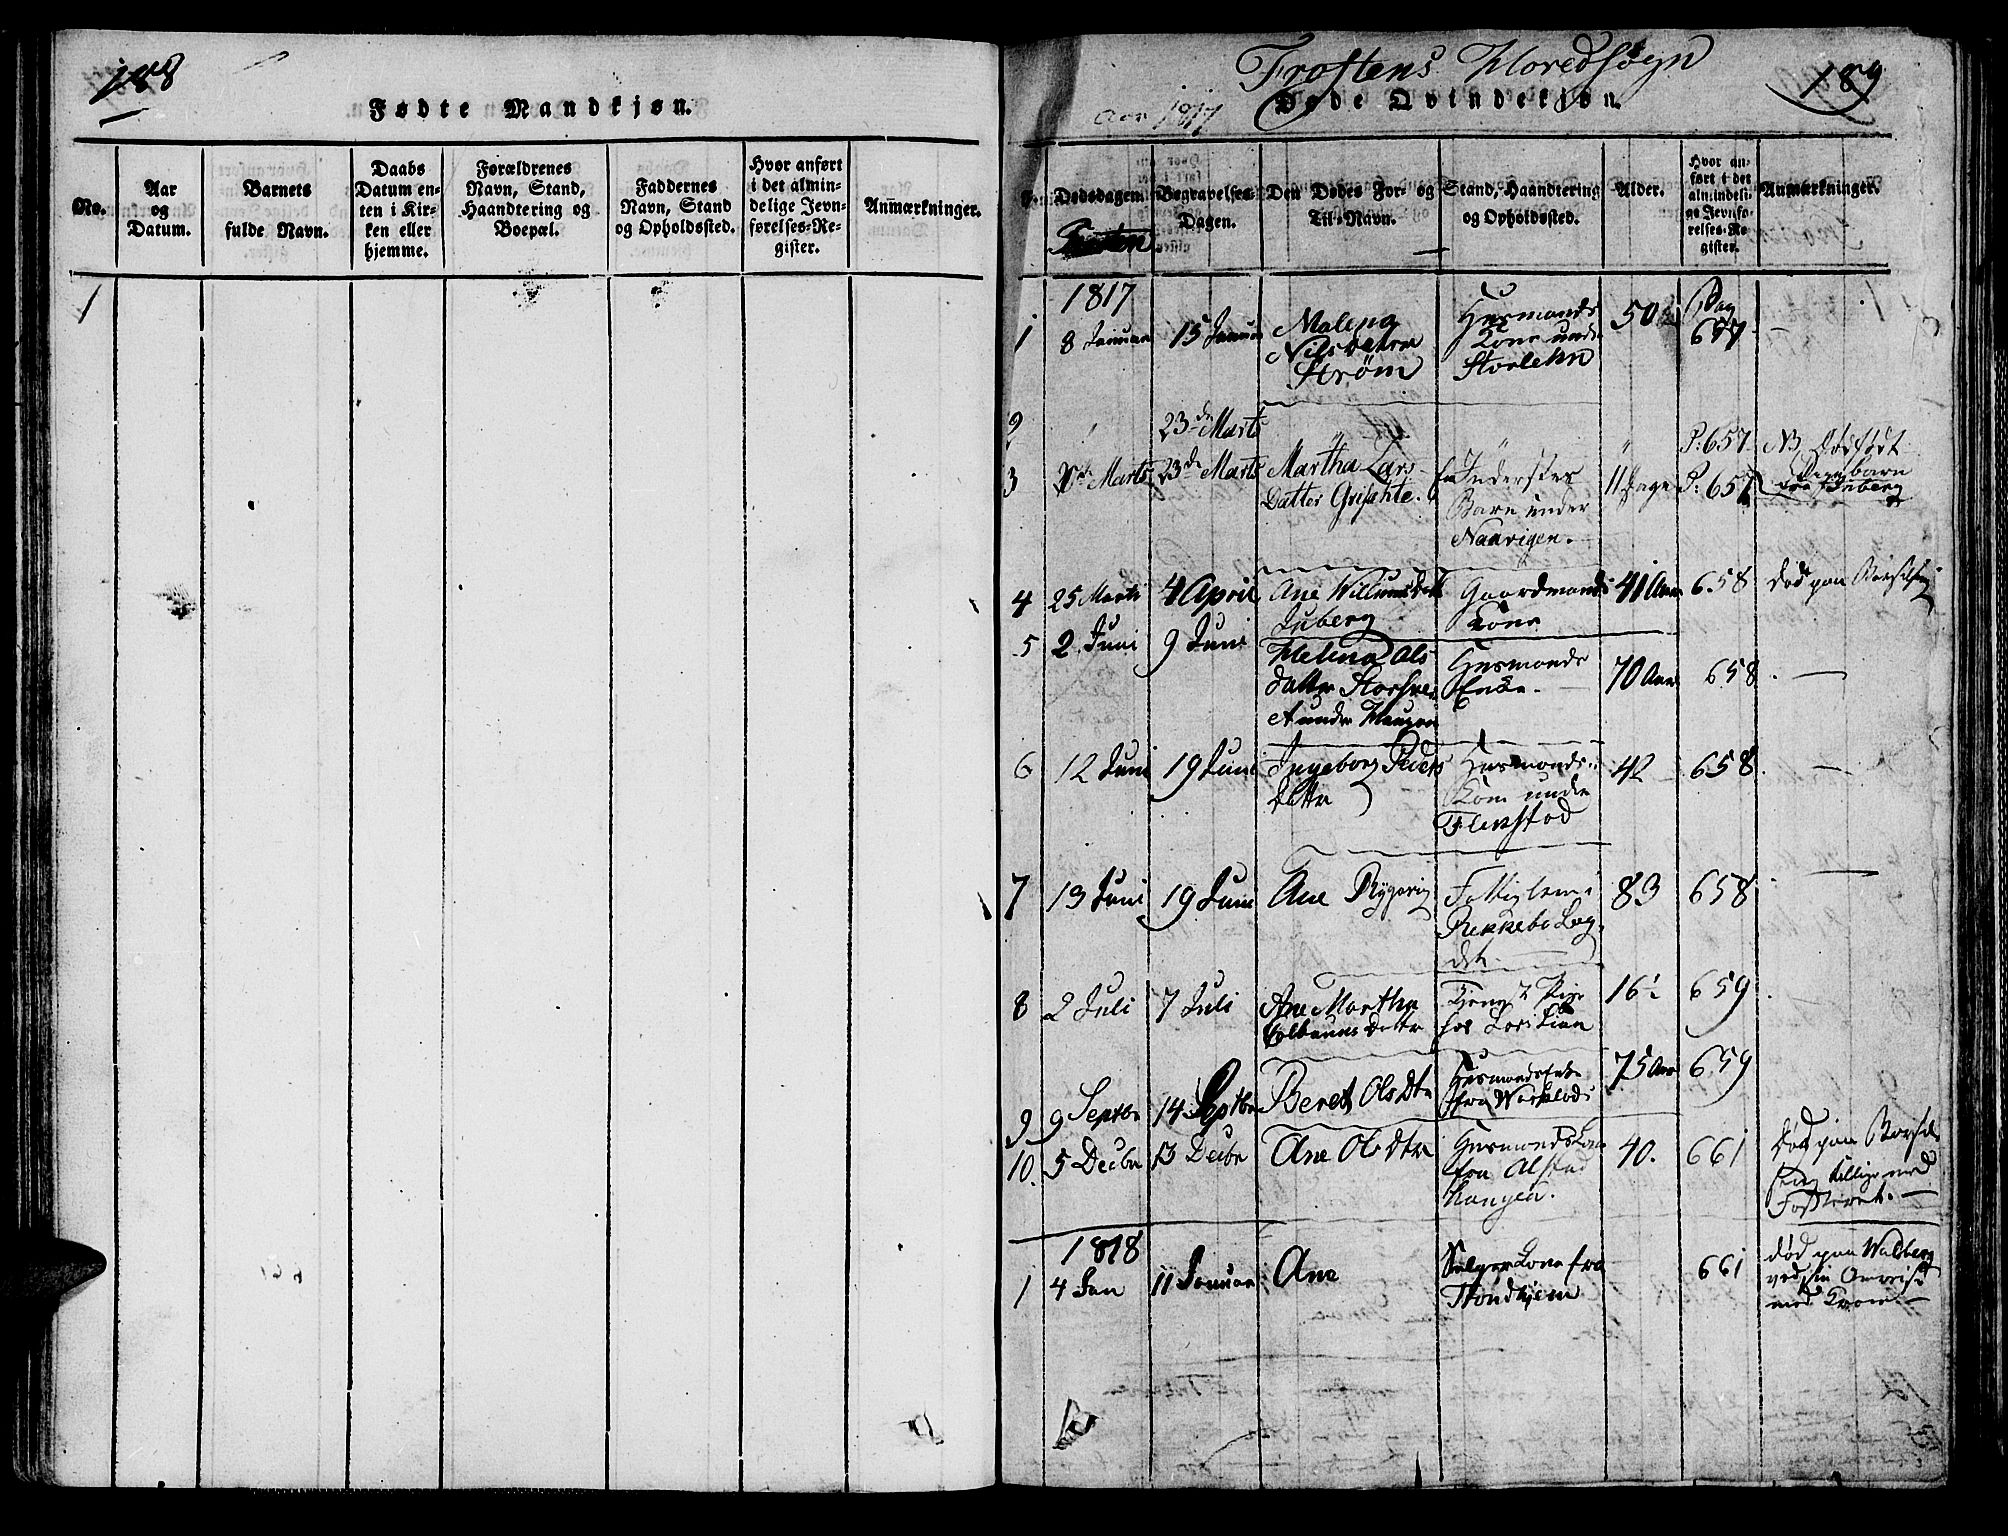 188
Fødte Mandkjøn.
No.
Aar
og
Datum.
Barnets
fulde Navn.
Daabs
Datum en-
ten i Kir-
ken eller
hjemme.
Forældrenes
Navn, Stand,
Haandtering og
Boepæl.
Faddernes
Navn, Stand
og Opholdssted.
Hvor anført
i det almin-
delige Jevn-
førelses-Re-
gister.
Anmærkninger.
1
Frostens Hovedsogn
189
Døde Qvindekjøn.
Aar 1817
Dødsdagen.
Begravelses-
Dagen.
Den Dødes For- og
Til-Navn.
Stand, Haandtering
og Opholdssted.
Alder.
Hvor an-
ført i det
almindeli-
ge Jevnfø-
relses-Re-
gister.
Anmærkninger.
1817
1 8 Januar 15 Januar Malena
Nilsdatter
Strøm
Husmands
Kone under
Storlehn
50
Pag
677
2 23de Marts P: 657 NB Dødfødt
Pigebarn
fra Inberg
3 Marts 23de Marts Martha Lars
Datter Grisahte.
Inderstes
Barn under
Naavigen.
11 Dage P: 657
4 25 Marts 4 April Ane Willumsdatter
Inberg
Gaardmands
Kone
41 Aar 658 død paa Barselseng
5 2 Juni 9 Juni Helena Ols
datter
under Haugan
Husmands
Enke.
70 Aar 658
6 12 Juni 19 Juni Ingeborg Peders
Datter
Husmands
Kone under
Flekstad
42 658
7 13 Juni 19 Juni Ane
Fattiglem i
Rekkebo Leg-
det.
83 658
8 2 Juli 7 Juli Ane Martha
Datter
Pige
hos
16 659
9 9 Septbr 14 Septbr Beret Ols Dtr
Husmandsenke
fra
75 Aar 659
10. 5 Decbr 13 Decbr Ane Ols Dtr
Husmands Kone
fra Alstad
haugen.
40. 661
Død paa Barsel
seng tillige med
Fosteret.
1818
1 4 Jan 11 Januar Ane
Kone fra
Trondhjem
661
død paa Wadberg